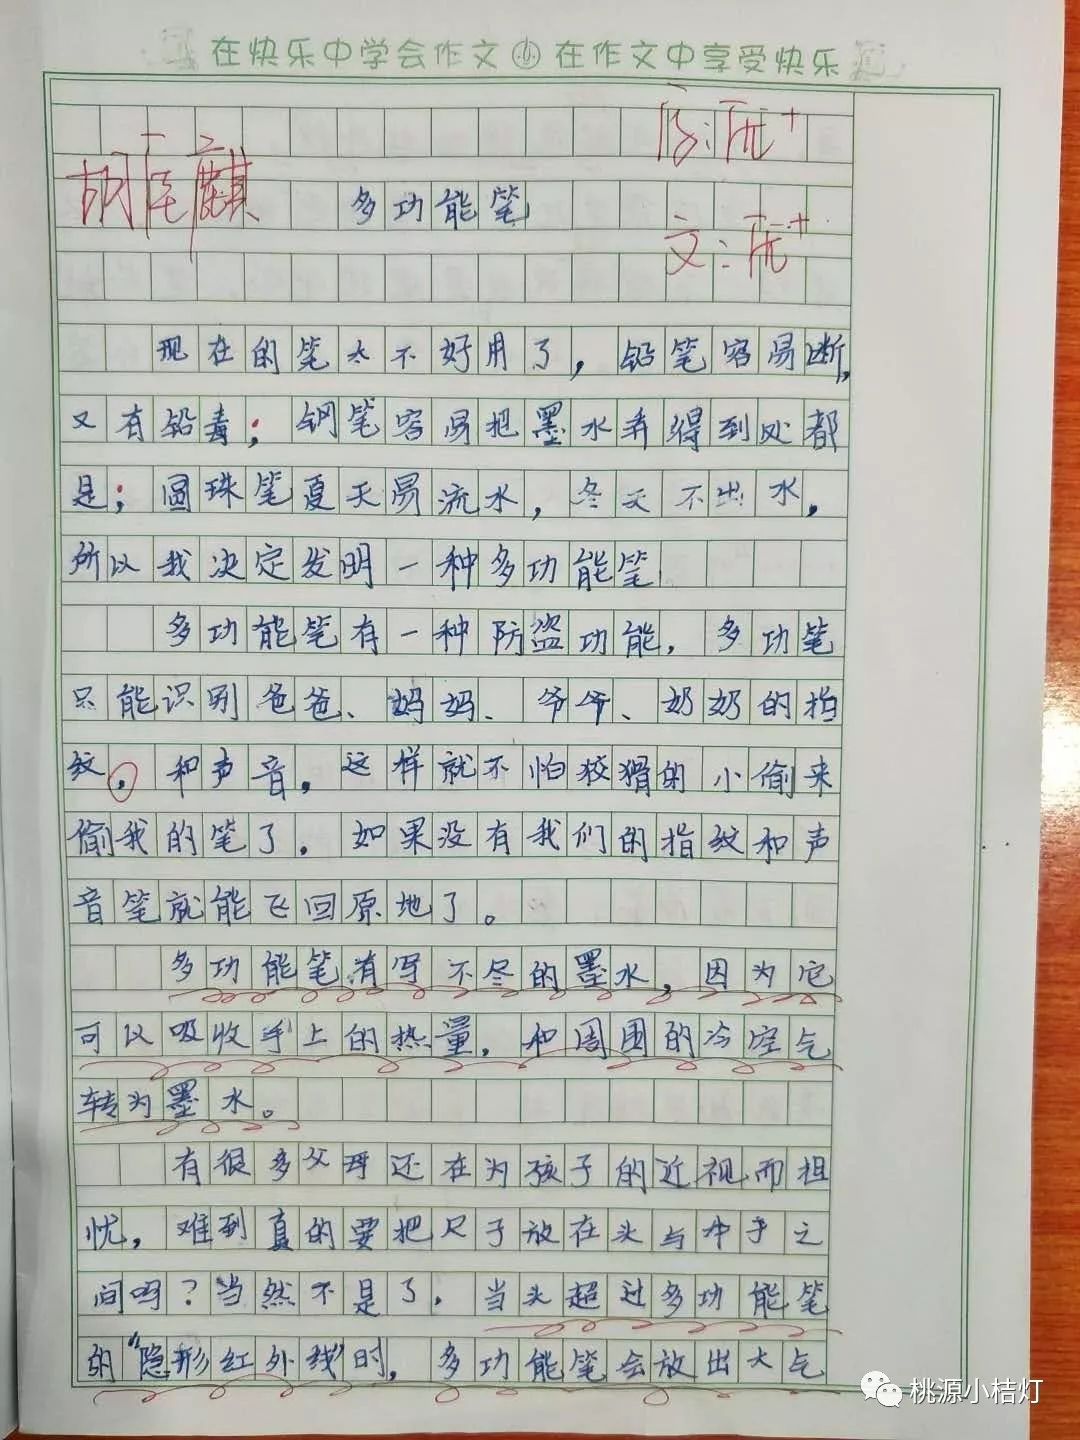 在快乐中学会作文 小 在作文中享受快乐
优+
胡 麒 多功能笔
文:优+
现在的笔太不好用了,铅笔容易断,
又有铅毒;钢笔容易把墨水弄得到处都
是;圆珠笔夏天易流水,冬天不出水,
所以我决定发明一种多功能笔
多功能笔有一种防盗功能,多功笔
只能识别爸爸、妈妈、爷爷、奶奶的指
纹,和声音,这样就不怕狡猾的小偷来
偷我的笔了.如果没有我们的指纹和声
音笔就能飞回原地了。
多功能笔有写不尽的墨水,因为它
可以吸收手上的热量,和周围的冷空气
转为墨水。
有很多父母还在为孩子的近视而担
忧,难到真的要把尺子放在头与中手之
间吗?当然不是了.当头超过多功能笔
的“隐形红外线”时,多功能笔会放出大气
桃源小桔灯